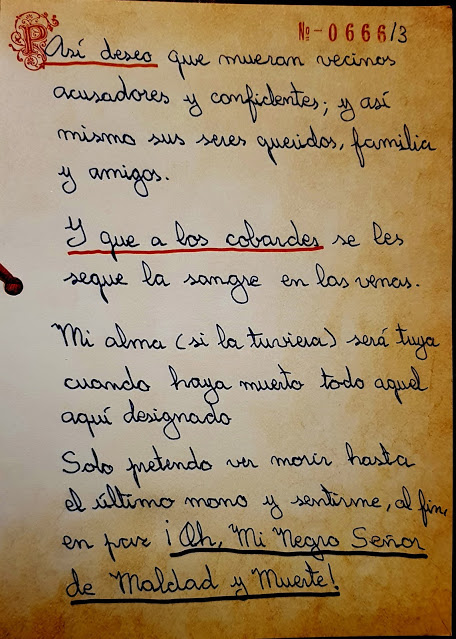 Nº-0666/3
P
Así deseo que mueran vecinos
acusadores y confidentes; y así
mismo sus seres queridos, familia
y amigos.
Y que a los cobardes se les
seque la sangre en las venas.
Mi alma (si la tuviera) será tuya
cuando haya muerto todo aquel
aquí designado
Solo pretendo ver morir hasta
el último mono y sentirme, al fin,
en paz ¡Oh, Mi Negro Señor
de Maldad y Muerte!